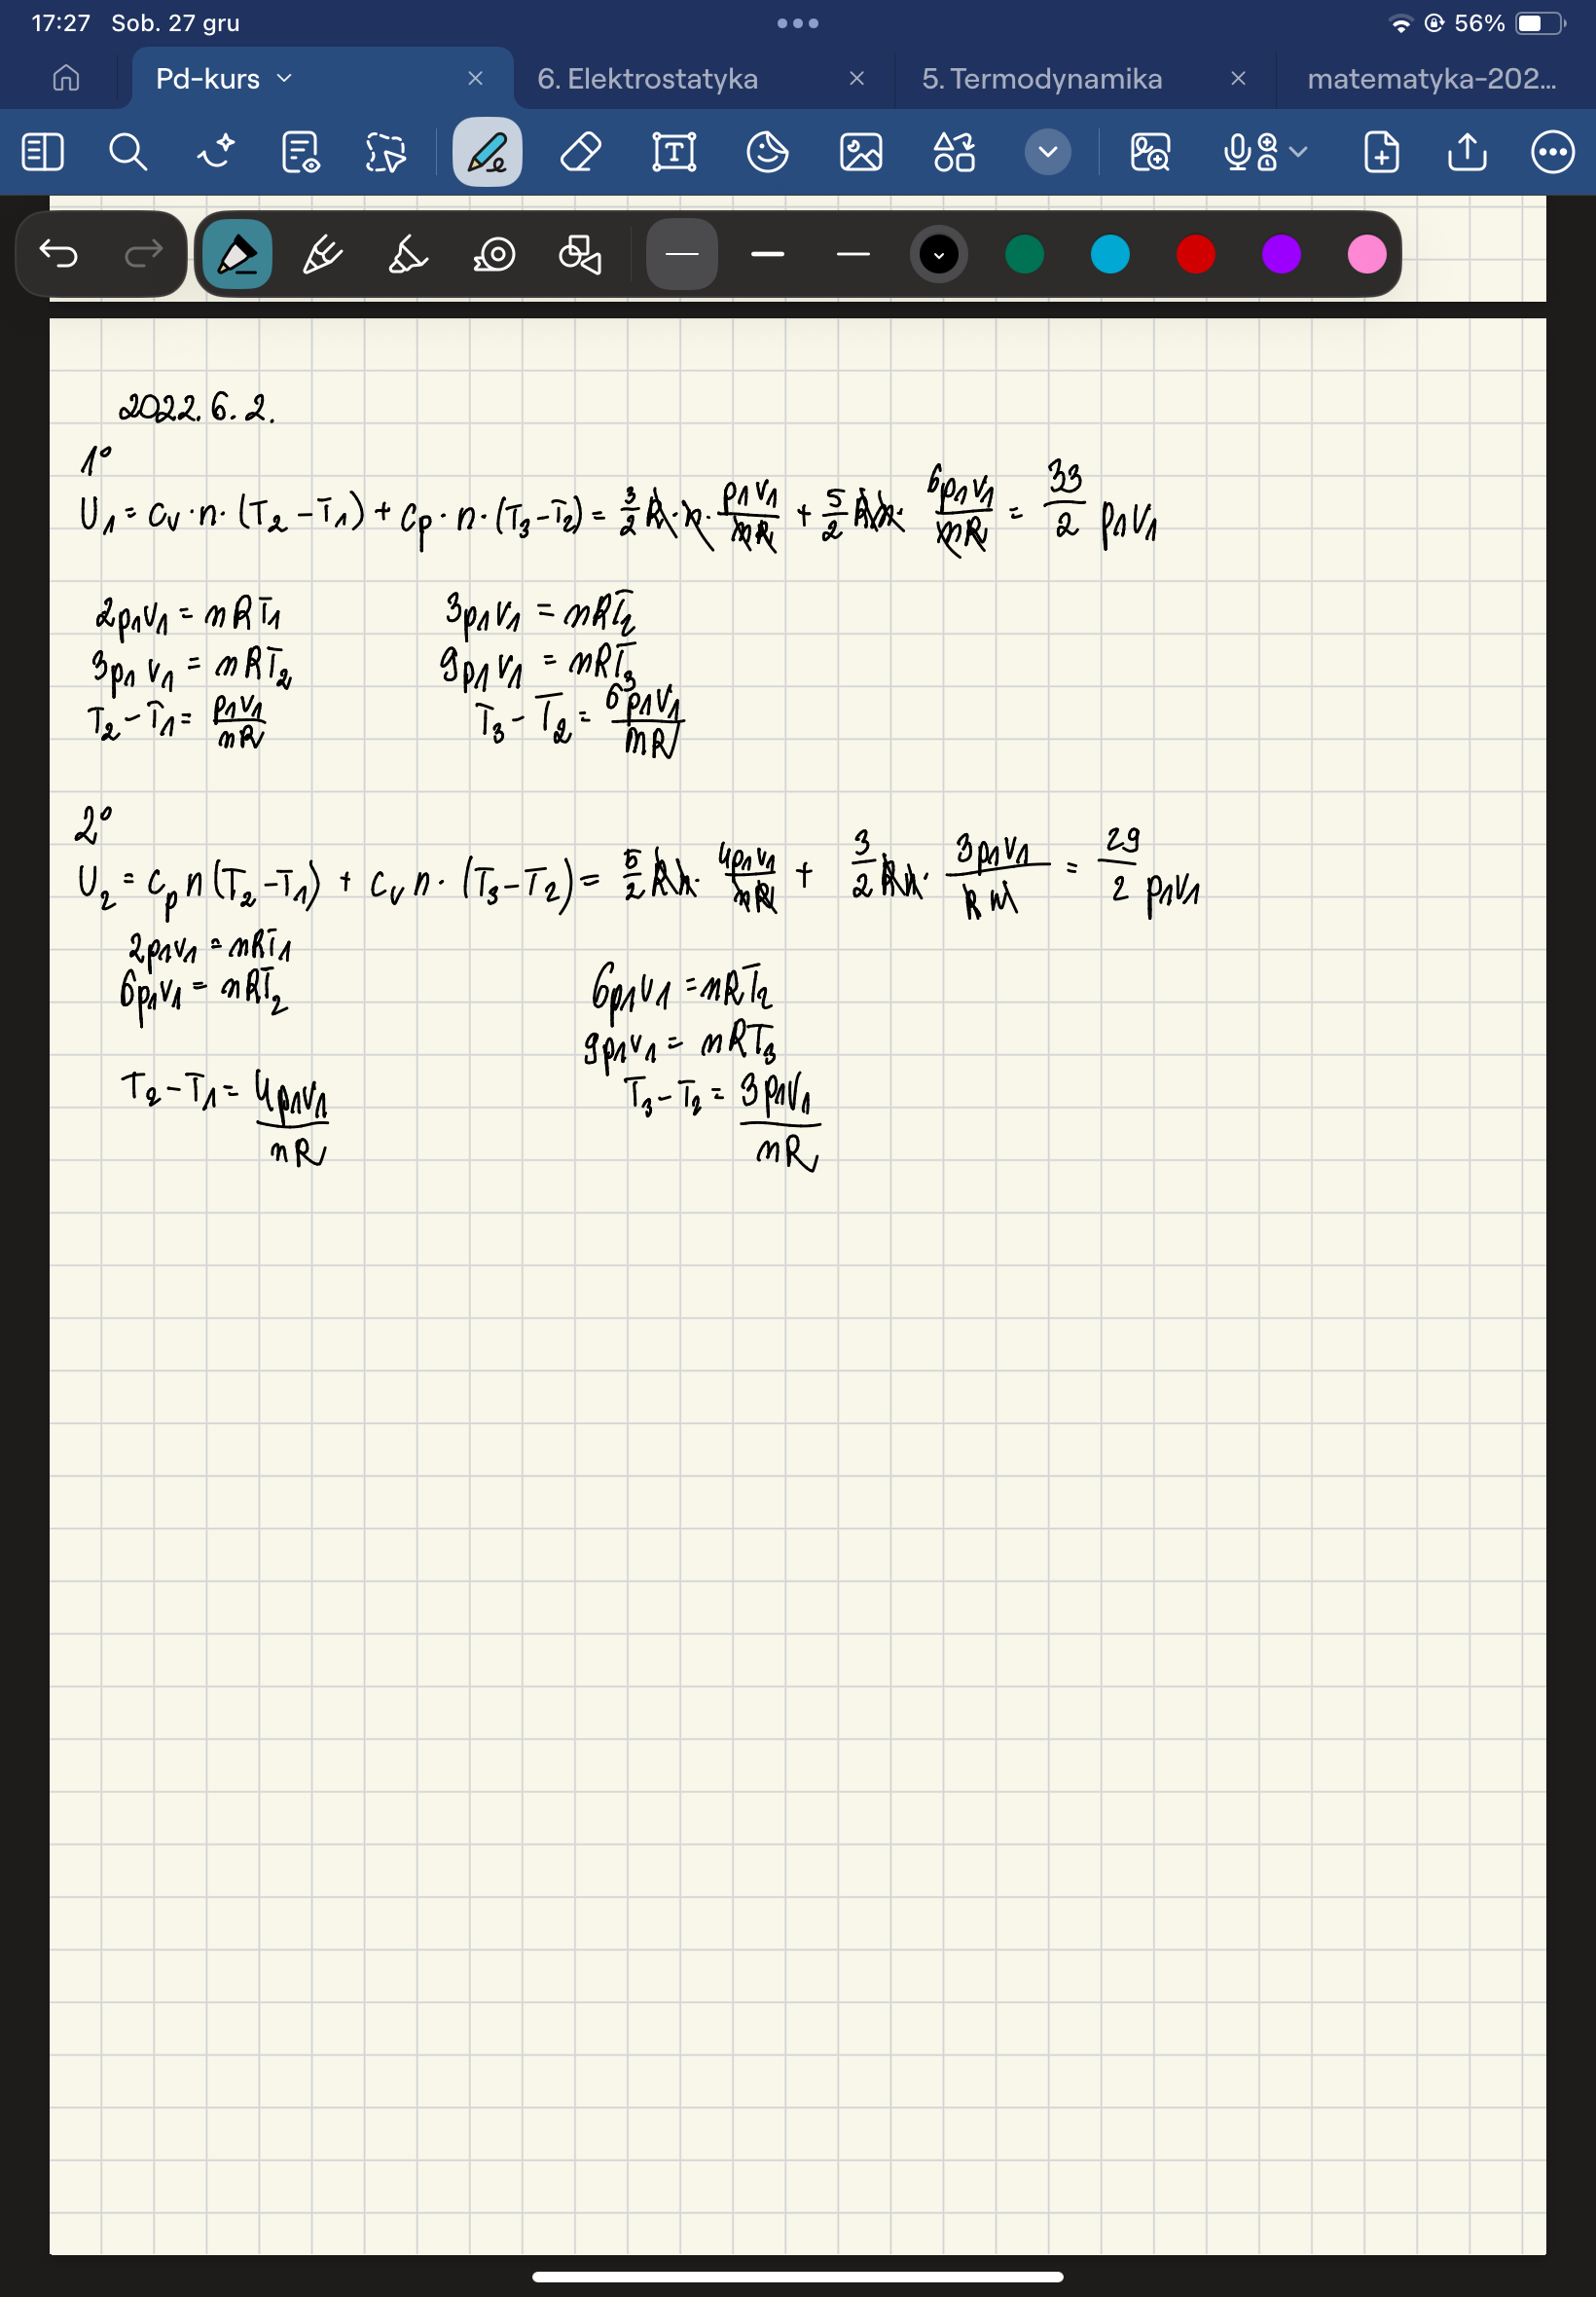 17:27 Sob. 27 gru
56%
Pd-kurs
6. Elektrostatyka
5. Termodynamika
matematyka-202...
2022.6.2.
1°
U₁ = cᵥ · n · (T₂ - T₁) + cₚ · n · (T₃ - T₂) = 3/2 R · n · p₁V₁/nR + 5/2 Rn · 6p₁V₁/nR = 33/2 p₁V₁
2p₁V₁ = nRT₁
3p₁V₁ = nRT₂
3p₁V₁ = nRT₂
9p₁V₁ = nRT₃
T₂ - T₁ = p₁V₁/nR
T₃ - T₂ = 6p₁V₁/nR
2°
U₂ = cₚ n (T₂ - T₁) + cᵥ n · (T₃ - T₂) = 5/2 Rn · 4p₁V₁/nR + 3/2 Rn · 3p₁V₁/Rn = 29/2 p₁V₁
2p₁V₁ = nRT₁
6p₁V₁ = nRT₂
6p₁V₁ = nRT₂
9p₁V₁ = nRT₃
T₂ - T₁ = 4p₁V₁/nR
T₃ - T₂ = 3p₁V₁/nR